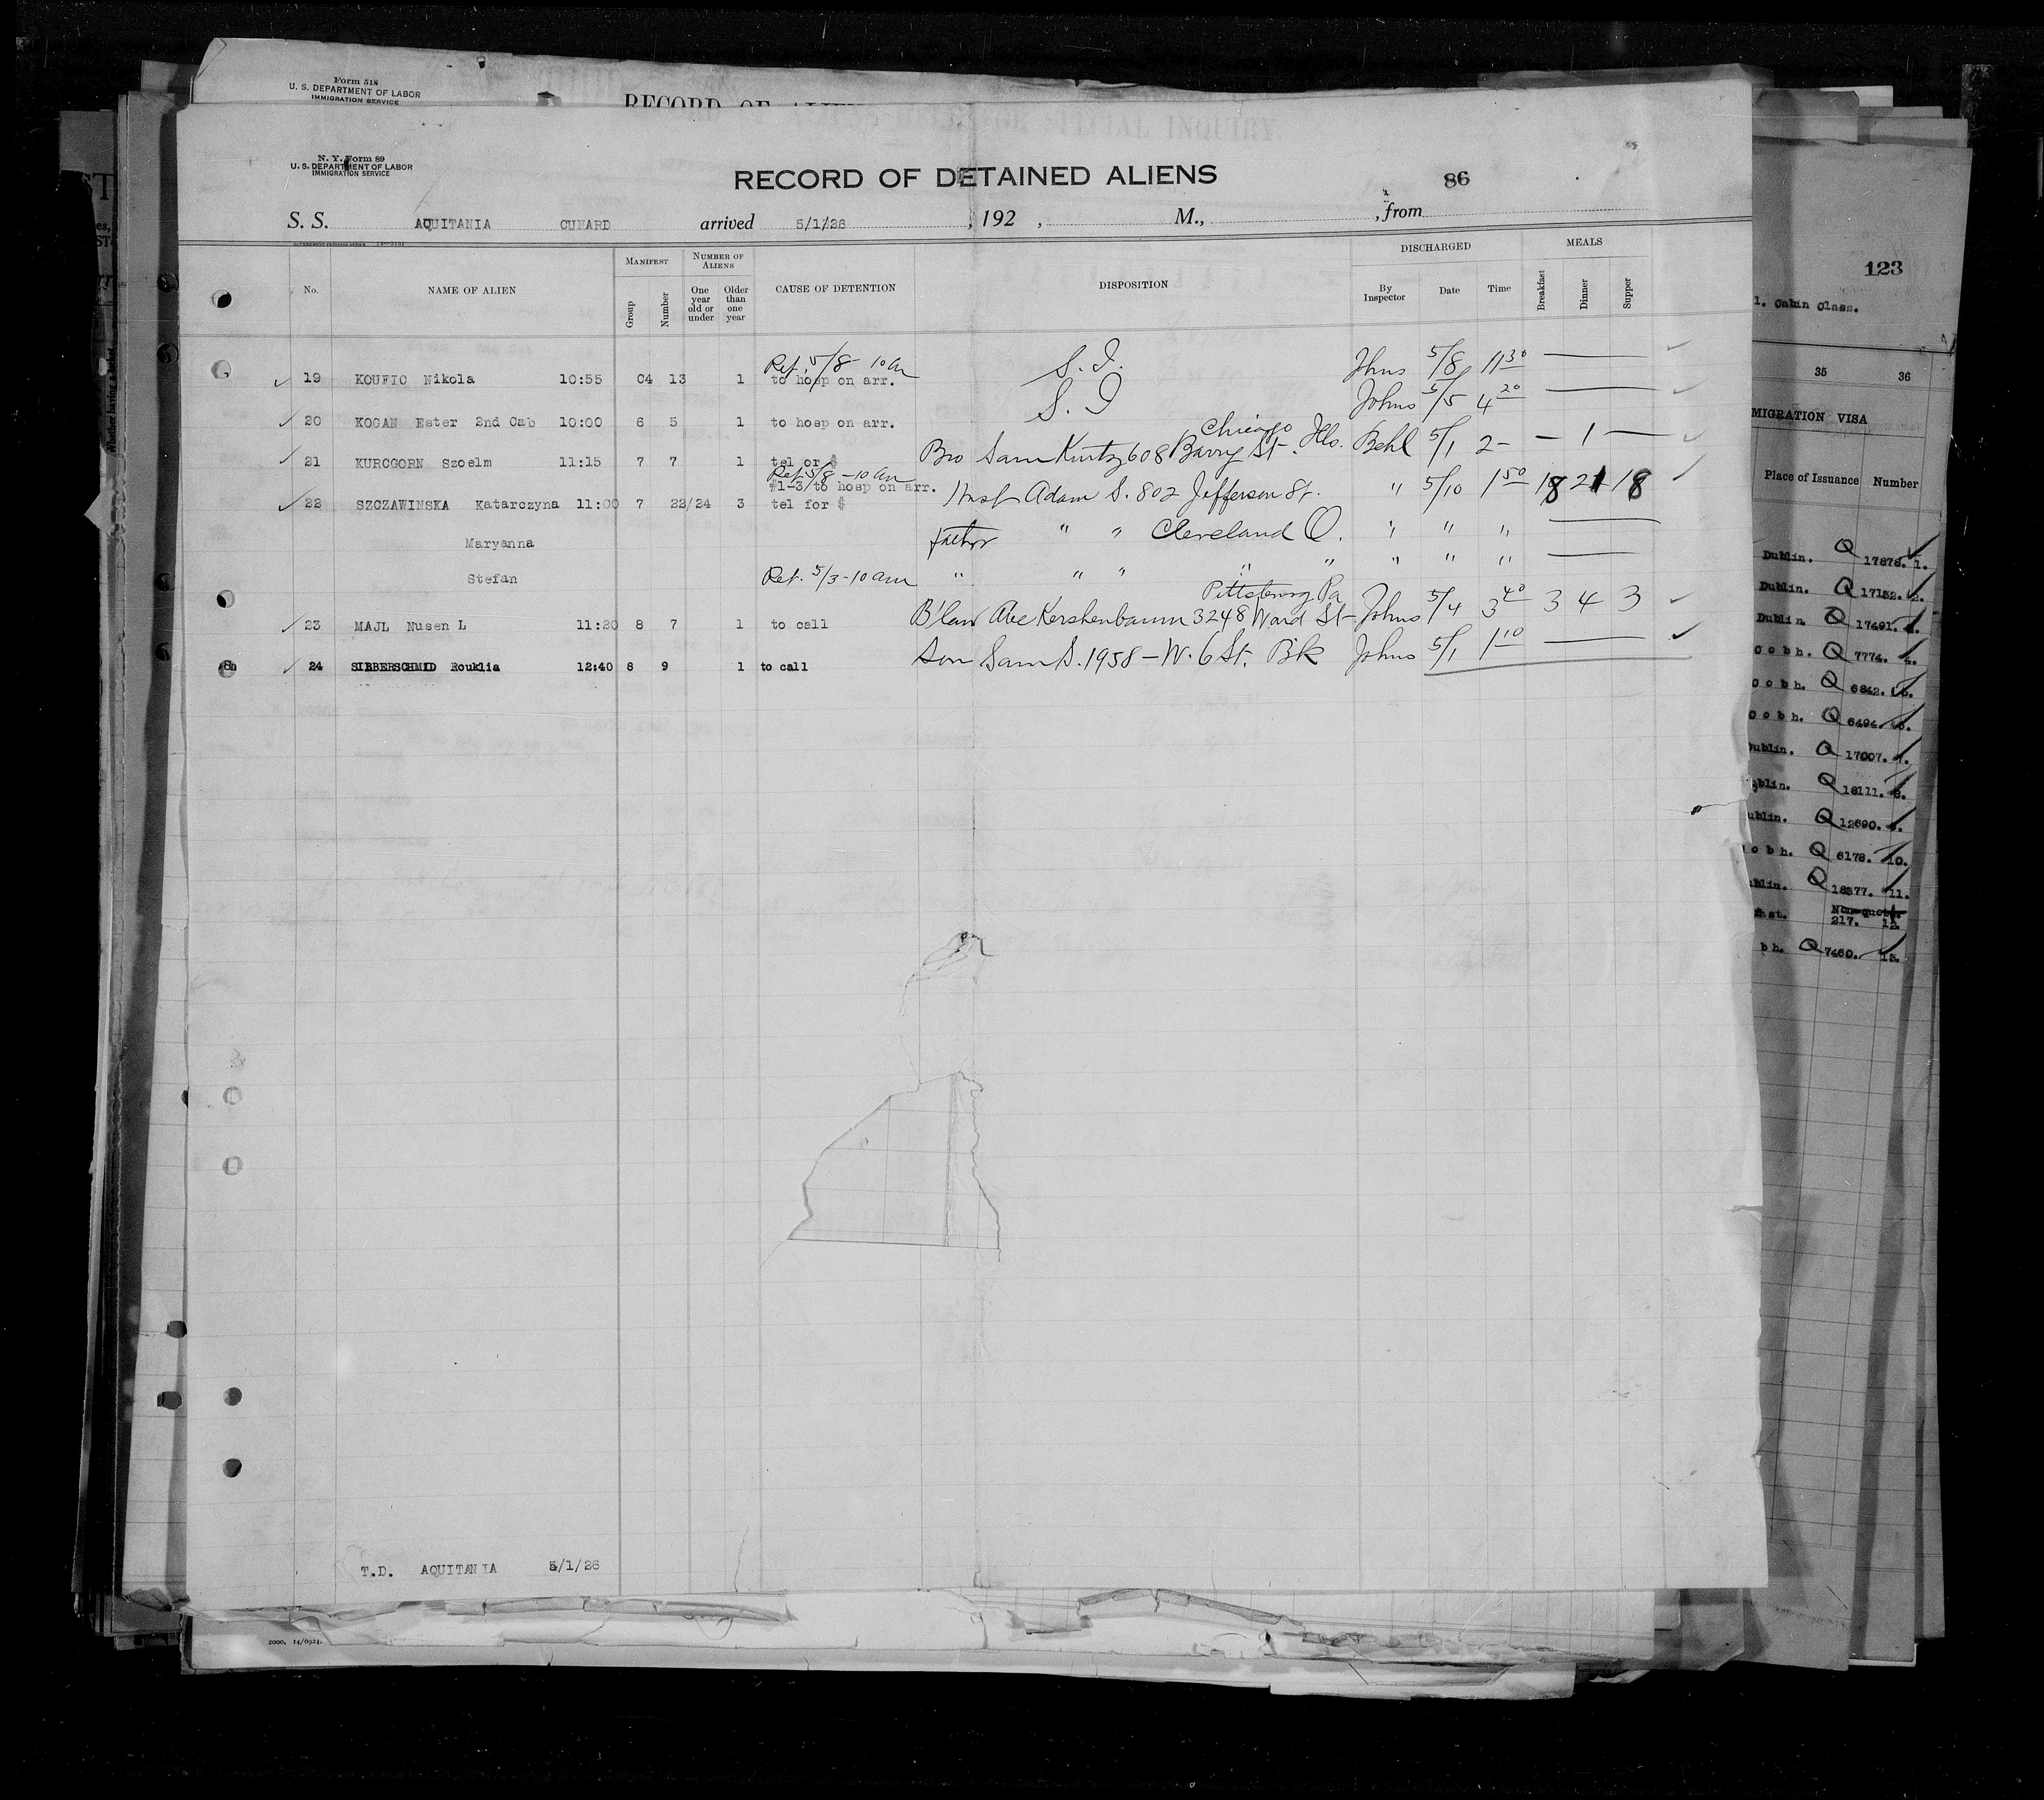 Form 518
U. S. DEPARTMENT OF LABOR
IMMIGRATION SERVICE
RECORD OF
N. Y. Form 89
U. S. DEPARTMENT OF LABOR
IMMIGRATION SERVICE
RECORD OF DETAINED ALIENS
86
S. S. AQUITANIA CUNARD arrived 5/1/26 , 192 , M., , from
No. NAME OF ALIEN MANIFEST Group Number NUMBER OF ALIENS One year old or under Older than one year CAUSE OF DETENTION DISPOSITION DISCHARGED By Inspector Date Time MEALS Breakfast Dinner Supper
Ret. 5/8 - 10 am
19 KOUFIC Nikola 10:55 04 13 1 to hosp on arr. S. I. Johns 5/8 11 30
20 KOGAN Ester 2nd Cab 10:00 6 5 1 to hosp on arr. S. I Johns 5/5 4 20
Chicago
21 KURCGORN Szoelm 11:15 7 7 1 tel or $ Bro Sam Kurtz 608 Barry St. Ills. Behl 5/1 2 - — 1 —
Ret 5/8 - 10 am
#1-3/to hosp on arr.
22 SZCZAWINSKA Katarczyna 11:00 7 22/24 3 tel for $ Husb Adam S. 802 Jefferson St. " 5/10 1 50 18 21 18
Maryanna Father " " Cleveland O. " " "
Stefan " " " " " " " "
Ret. 5/3 - 10 am Pittsburg Pa
23 MAJL Nusen L 11:20 8 7 1 to call B'law Abe Kershenbaum 3248 Ward St - Johns 5/4 3 40 3 4 3
24 SIBBERSCHMID Rouklia 12:40 8 9 1 to call Son Sam S. 1958 - W. 6 St. Bk Johns 5/1 1 10
T.D. AQUITANIA 5/1/26
2000, 14/6924.
123
1. Cabin Class.
35 36
MIGRATION VISA
Place of Issuance Number
Dublin. Q 17878. 1.
Dublin. Q 17152. 2.
Dublin. Q 17491.
Cobh. Q 7774. 4.
Cobh. Q 6842. 5.
Cobh. Q 6494. 6.
Dublin. Q 17007. 7.
blin. Q 18111. 8.
ublin. Q 12690. 9.
obh. Q 6178. 10.
blin. Q 18377. 11.
fast. Non-quota 217. 12.
bh. Q 7460. 13.